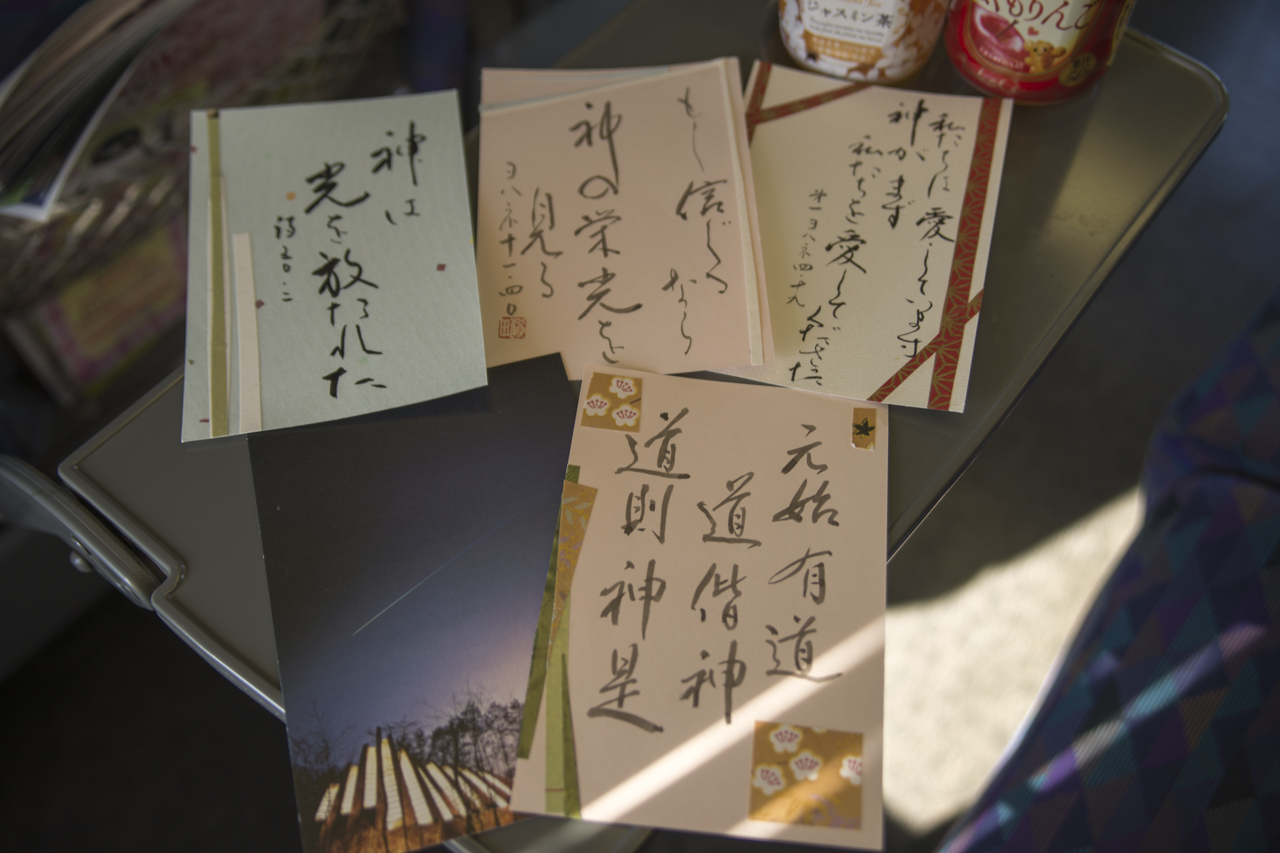 神は
光を放たれた
詩五〇・二
もし信じるなら
神の栄光を
見る
ヨハネ十一・四〇
私たちは愛しています
神がまず
私たちを愛してくださった
第一ヨハネ四・十九
元始有道
道偕神
道則神是
ジャスミン茶
りんご